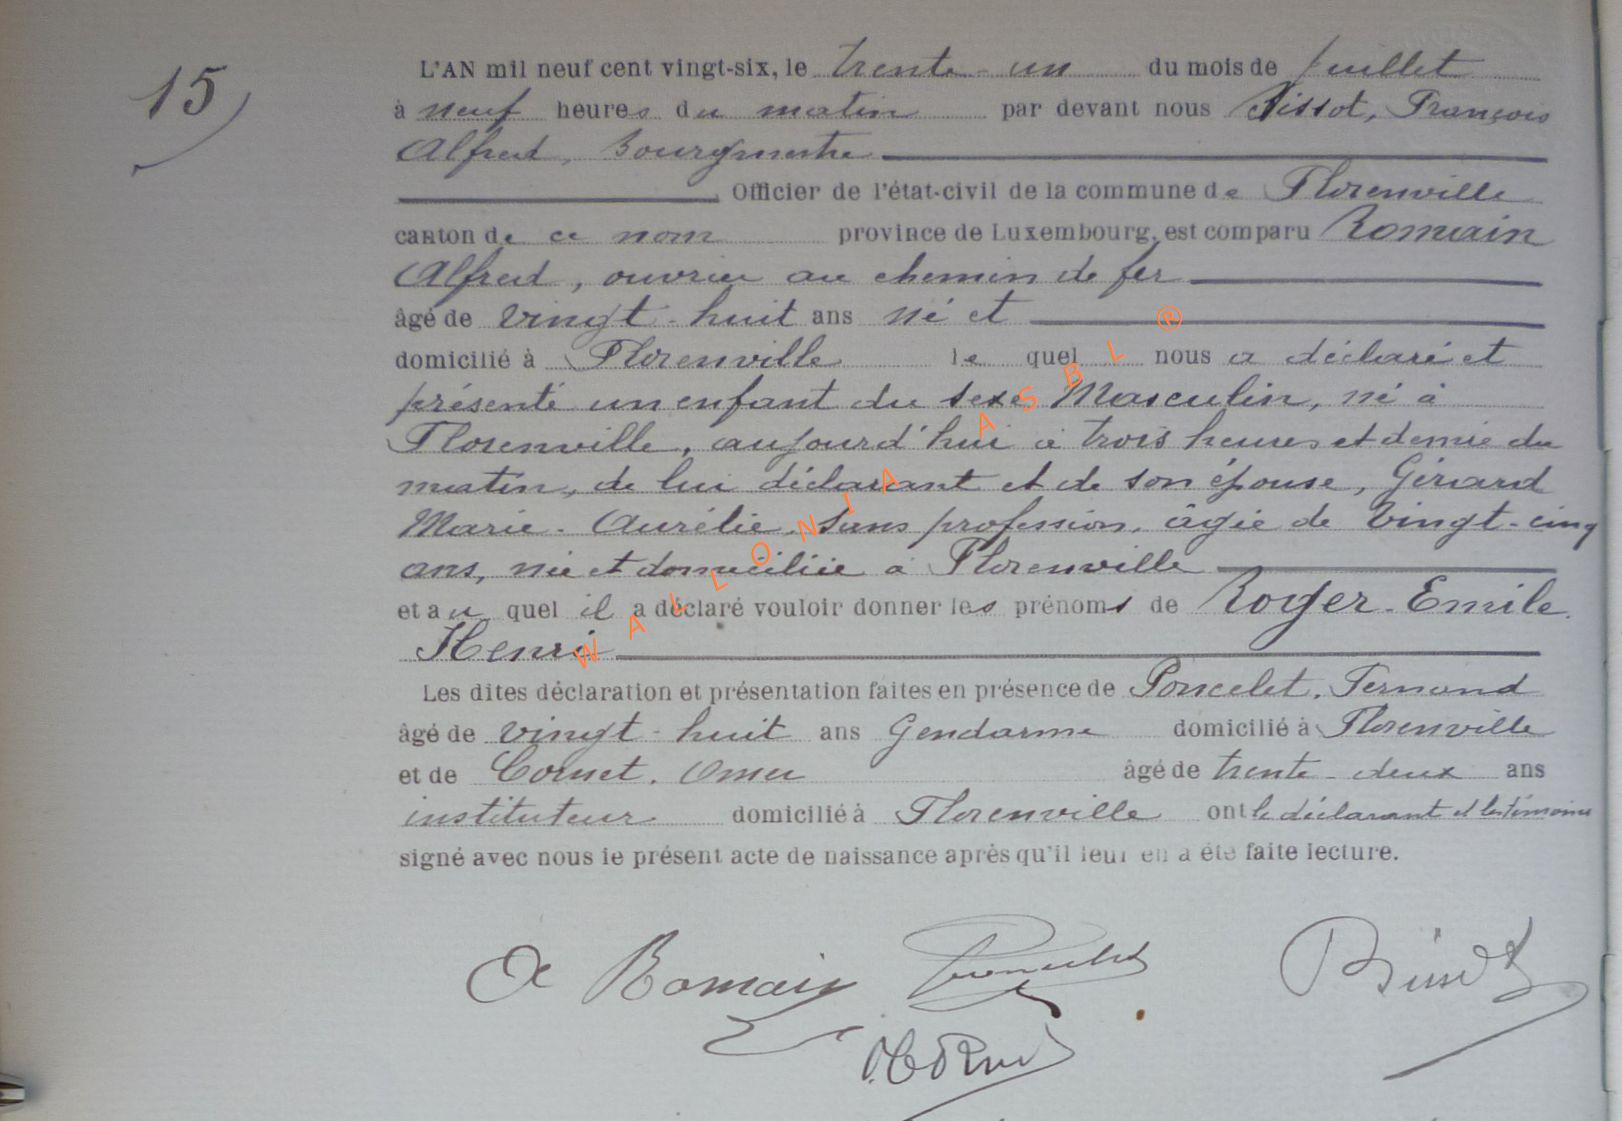 15
L'AN mil neuf cent vingt-six, le trente-un du mois de Juillet
à neuf heures du matin par devant nous Pissot, François
Alfred, Bourgmestre
Officier de l'état-civil de la commune de Florenville
canton de ce nom province de Luxembourg, est comparu Romain
Alfred, ouvrier au chemin de fer
âgé de vingt-huit ans né et
domicilié à Florenville le quel nous a déclaré et
présenté un enfant du sexe Masculin, né à
Florenville, aujourd'hui à trois heures et demie du
matin, de lui déclarant et de son épouse, Gérard
Marie-Aurélie, sans profession, âgée de vingt-cinq
ans, née et domiciliée à Florenville
et au quel il a déclaré vouloir donner les prénoms de Roger-Emile
Henri
Les dites déclaration et présentation faites en présence de Poncelet, Fernand
âgé de vingt-huit ans Gendarme domicilié à Florenville
et de Cornet, Omer âgé de trente-deux ans
instituteur domicilié à Florenville ont le déclarant et les témoins
signé avec nous le présent acte de naissance après qu'il leur en a été faite lecture.
A Romain Poncelet
O. Cornet
WALLONIA ASBL ®